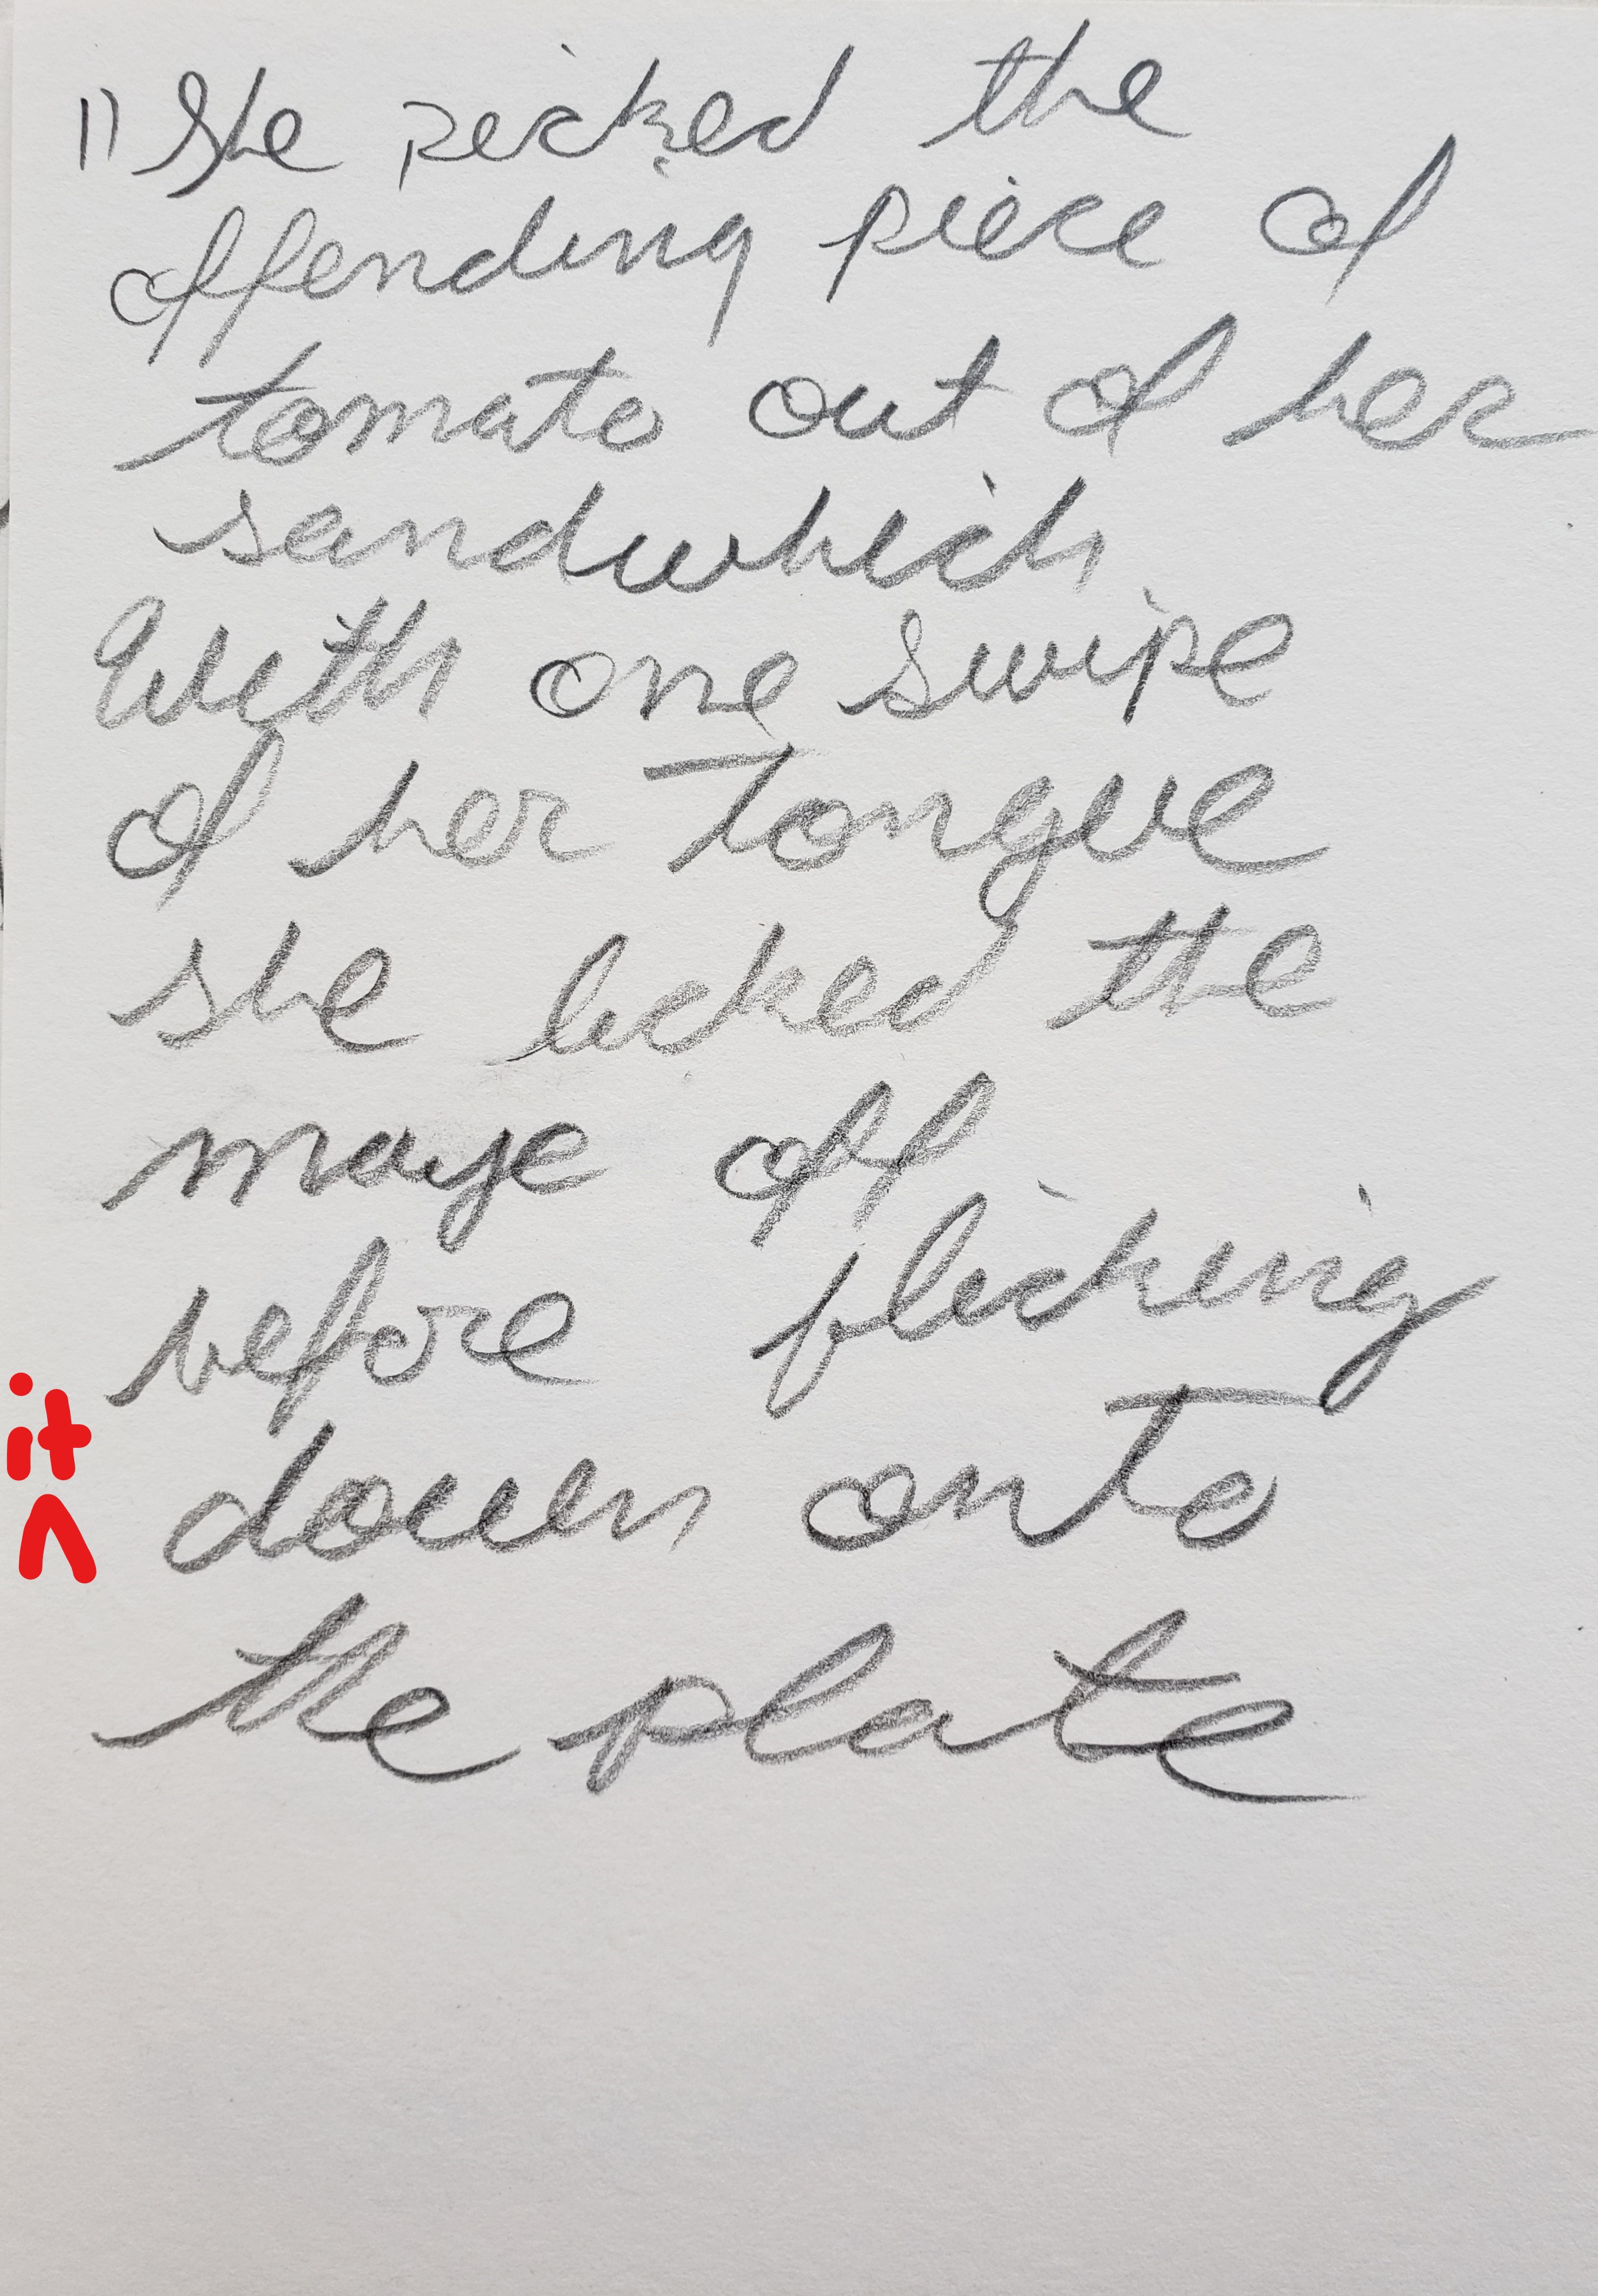 11 She picked the
offending piece of
tomato out of her
sandwhich.
With one swipe
of her tongue
she licked the
maye off
before flicking
it
^ down onto
the plate